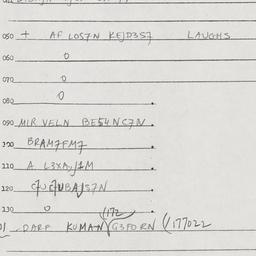 050 + AF LOS7N KEJD3S7 LAUGHS
060 0
070 0
080 0
090 MIR VELN BE54NC7N
100 BRAM7FM7
110 A L3XA
120
130 0 172
DARF KUMAN G3FORN 177022